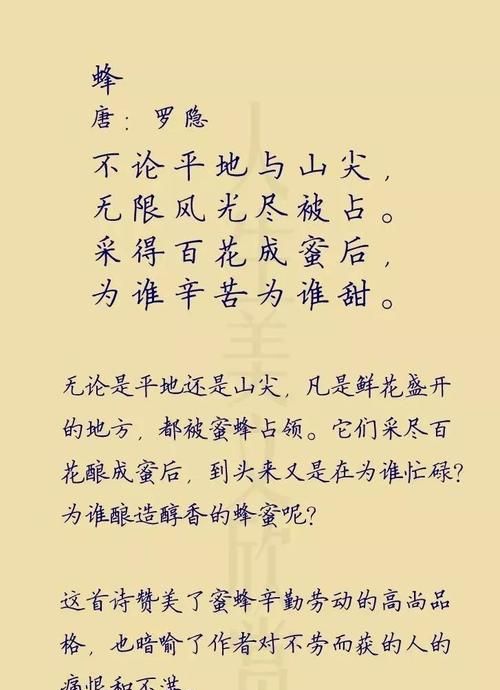 蜂
唐：罗隐
不论平地与山尖，
无限风光尽被占。
采得百花成蜜后，
为谁辛苦为谁甜。
无论是平地还是山尖，凡是鲜花盛开
的地方，都被蜜蜂占领。它们采尽百
花酿成蜜后，到头来又是在为谁忙碌？
为谁酿造醇香的蜂蜜呢？
这首诗赞美了蜜蜂辛勤劳动的高尚品
格，也暗喻了作者对不劳而获的人的
痛恨和不满